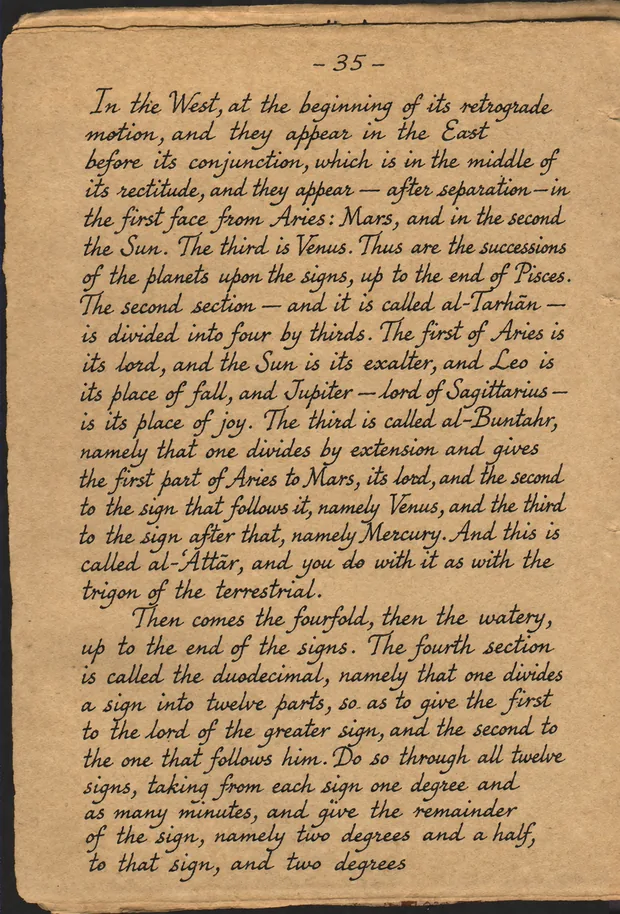 – 35 –
In the West, at the beginning of its retrograde
motion, and they appear in the East
before its conjunction, which is in the middle of
its rectitude, and they appear — after separation — in
the first face from Aries: Mars, and in the second
the Sun. The third is Venus. Thus are the successions
of the planets upon the signs, up to the end of Pisces.
The second section — and it is called al-Tarhān —
is divided into four by thirds. The first of Aries is
its lord, and the Sun is its exalter, and Leo is
its place of fall, and Jupiter — lord of Sagittarius —
is its place of joy. The third is called al-Buntahr,
namely that one divides by extension and gives
the first part of Aries to Mars, its lord, and the second
to the sign that follows it, namely Venus, and the third
to the sign after that, namely Mercury. And this is
called al-ʿAttār, and you do with it as with the
trigon of the terrestrial.
Then comes the fourfold, then the watery,
up to the end of the signs. The fourth section
is called the duodecimal, namely that one divides
a sign into twelve parts, so as to give the first
to the lord of the greater sign, and the second to
the one that follows him. Do so through all twelve
signs, taking from each sign one degree and
as many minutes, and give the remainder
of the sign, namely two degrees and a half,
to that sign, and two degrees